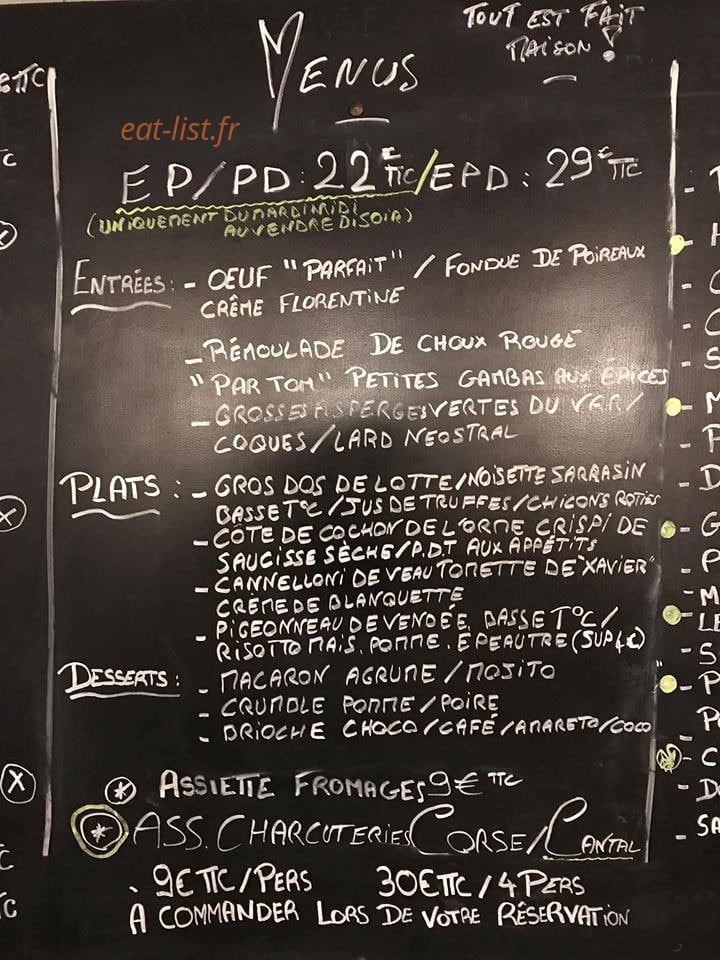 TOUT EST FAIT
MAISON !
MENUS
eat-list.fr
EP/PD : 22€ TTC/EPD : 29€ TTC
(UNIQUEMENT DU MARDI MIDI
AU VENDREDI SOIR)
ENTRÉES : - OEUF "PARFAIT" / FONDUE DE POIREAUX
CRÊME FLORENTINE
- RÉMOULADE DE CHOUX ROUGE
"PAR TOM" PETITES GAMBAS AUX ÉPICES
- GROSSES ASPERGES VERTES DU VAR/
COQUES/LARD NEOSTRAL
PLATS : - GROS DOS DE LOTTE/NOISETTE SARRASIN
BASSE T°C/JUS DE TRUFFES/CHICONS ROTIES
- CÔTE DE COCHON DE L'ORNE CRISPI DE
SAUCISSE SÈCHE/P.D.T AUX APPÉTITS
- CANNELLONI DE VEAU TOMETTE DE "XAVIER"
CRÈME DE BLANQUETTE
- PIGEONNEAU DE VENDÉE BASSE T°C/
RISOTTO MAIS. POMME. EPEAUTRE (SUP 4€)
DESSERTS : - MACARON AGRUME/MOJITO
- CRUMBLE POMME/POIRE
- BRIOCHE CHOCO/CAFÉ/AMARETO/COCO
* ASSIETTE FROMAGES 9€ TTC
* ASS. CHARCUTERIES CORSE/CANTAL
. 9€ TTC/PERS 30€ TTC/4 PERS
A COMMANDER LORS DE VOTRE RÉSERVATION